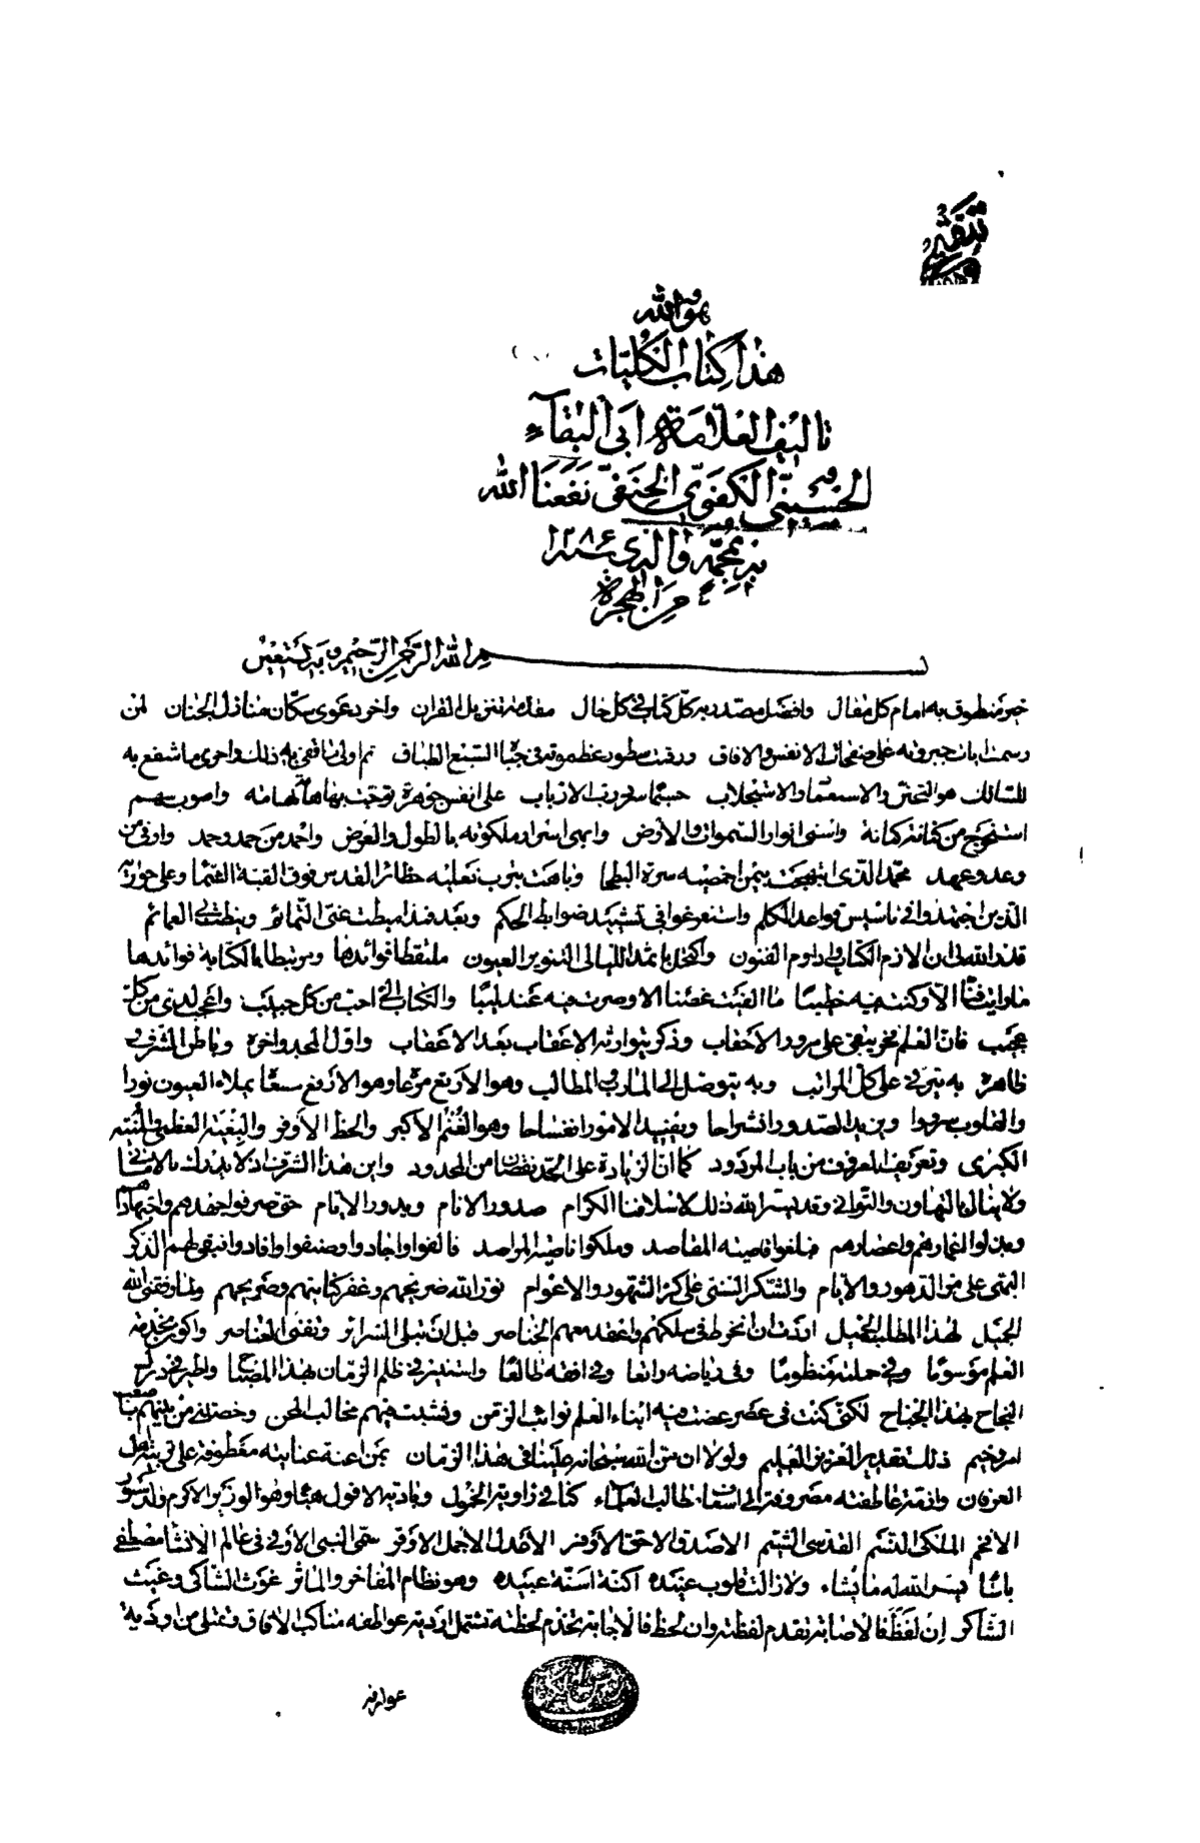 هو الله
هذا كتاب الكليات
تاليف العلامة ابى البقآء
الحسينى الكفوى الحنفى نفعنا الله
به بمحمد والذى سنه ١٢٨٦
من الهجرة
بسم الله الرحمن الرحيم وبه نستعين
خير منطوق به امام كل مقال وافضل مصدر به كل كتاب فى كل حال مقدمة تنزيل القران واخر دعوى سكان منازل الجنان لمن
رسمت ايات جبروته على صفحات الانفس والافاق ورقمت سطور عظموته فى جباه السبع الطباق ثم اولى ما قفى به ذلك واحرى ما شفع به
للسالك هو التحنن والاستعماد والاستجلاب حسبما على انفس جوهرة توجت بها هامة تهامه واصوب سهم
استخرج من كنانة كنانة واسنى انوار السموات والارض وابهى اسرار ملكوته بالطول والعرض واحمد من حمد وحمد واوفى من
وعد وعهد محمد الذى ابتهجت بيمن اخمصيه سرة البطحا وباهت بترب نعليه حظائر القدس فوق القبة الشما وعلى
الذين اجتهدوا فى تاسيس قواعد الكلم واستفرغوا فى تشييد ضوابط الحكم وبعد فمنذ اميطت عنى التمائم ونيطت بى العمائم
قدر الله لى ان الازم الكتاب واداوم الفنون واكتحل باثمد الليالى لتنوير العيون ملتقطا فوائدها ومرتبطا بالكتابة فوائدها
ما رايت فنا الا وكنت فيه خطيبا وما الفيت غصنا الا وصرت فيه عندليبا والكتاب الى احب من كل حبيب واعجب لدى من كل
عجيب فان العلم فخر يبقى على مرور الاحقاب وذكر يتوارثه الاعقاب بعد الاعقاب واول المجد واخره وباطن الشرف
ظاهره به يترقى على كل المراتب وبه يتوصل الى المارب والمطالب وهو الاربع مرعا وهو الارفع سعا يملاء العيون نورا
والقلوب سرورا ويزيد الصدور انشراحا ويفيد الامور انفساحا وهو الغنم الاكبر والحظ الاوفر والبغية العظمى والمنية
الكبرى وتعريف المعروف من باب المردود كما ان الزيادة على الحد نقصان من المحدود واين هذا الشرف اذ لا يدرك بالامانى
ولا ينال بالتهاون والتوانى وقد يسر الله ذلك لاسلافنا الكرام صدور الانام وبدور الايام حتى صرفوا جهدهم واجتهادهم
وبذلوا اعمارهم واعصارهم فبلغوا قاصية المقاصد وملكوا ناصية المراصد فالفوا واجادوا وصنفوا وافادوا فبقى لهم الذكر
على مر الدهور والايام والشكر السنى على كر الشهور والاعوام نور الله ضريحهم وغفر كنايتهم وصريحهم ولما وفقنى الله
الجميل لهذا المطلب الجميل اردت ان انخرط فى سلكهم واعقد معهم الخناصر قبل ان تبلى السرائر وتفنى العناصر واكون بخدمة
العلم موسوما وفى حملته منظوما وفى رياضه راتعا وفى افقه طالعا واستنير فى ظلم الزمان بهذا المصباح واطير فى درك
النجاح بهذا الجناح لكنى كنت فى عصر عضت فيه ابناء العلم نوائب الزمن ونشبت فيهم مخالب المحن وخصتنى من بينهم بنا
امر وخيم ذلك تقدير العزيز العليم ولولا ان من الله سبحانه علينا فى هذا الزمان بمن اعنة عنايته معطوفة على تربية اهل
العرفان وازمة عاطفته مصروفة الى اسعاف مطالب العلماء كنا فى زاوية الخمول وبادية الافول هباء وهو الوزير الاكرم والدستور
الافخم الملكى الشيم القدسى الشيم الاصدق الاحق الاوفر الاعدل الاجمل الاوقر سمى النبى الاولى فى عالم الانشا مصطفى
باشا يسر الله له ما يشاء ولا زالت قلوب عبيده اكنة اسنة عبيده وهو نظام المفاخر والماثر غوث الشاكى وغيث
الشاكر ان لفظ فالاصابة تقدم لفظته وان لحظ فالاجابة تخدم لحظته تشتمل اردية عواطفه مناكب الافاق وتمتلى من اودية
عوارفه